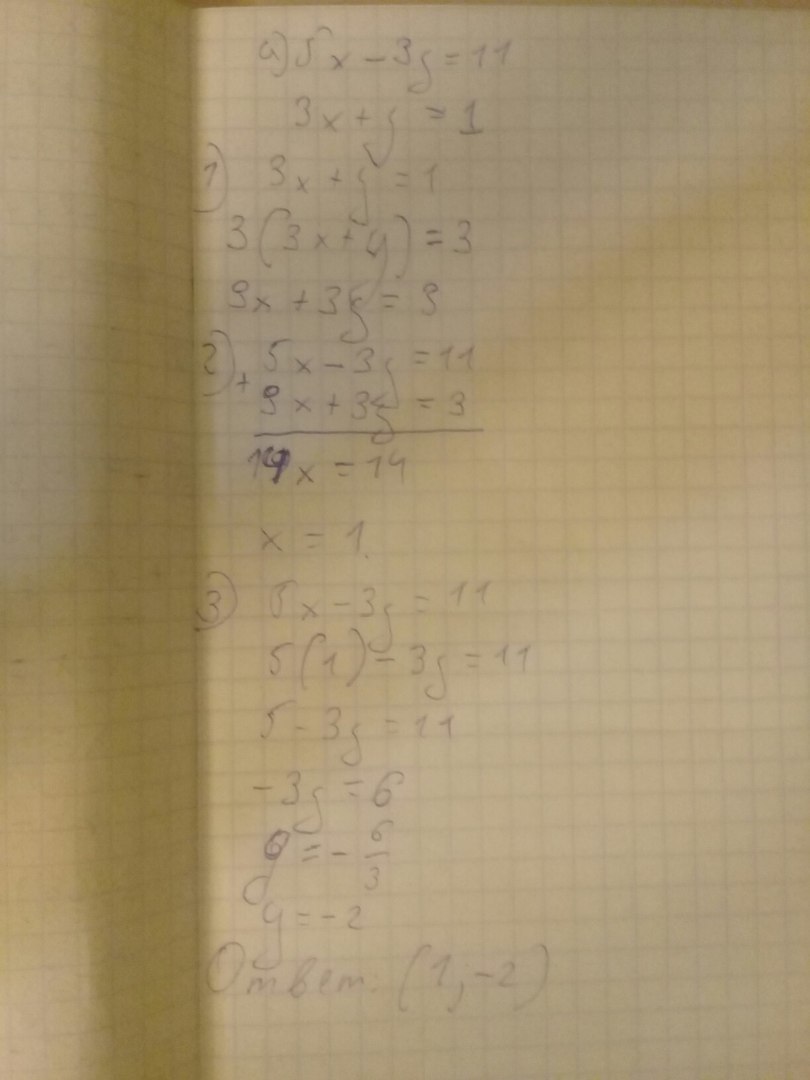 а) 5x - 3y = 11
3x + y = 1
1) 3x + y = 1
3(3x + y) = 3
9x + 3y = 3
2) + 5x - 3y = 11
9x + 3y = 3
14x = 14
x = 1.
3) 5x - 3y = 11
5(1) - 3y = 11
5 - 3y = 11
-3y = 6
y = - 6/3
y = -2
Ответ: (1; -2)